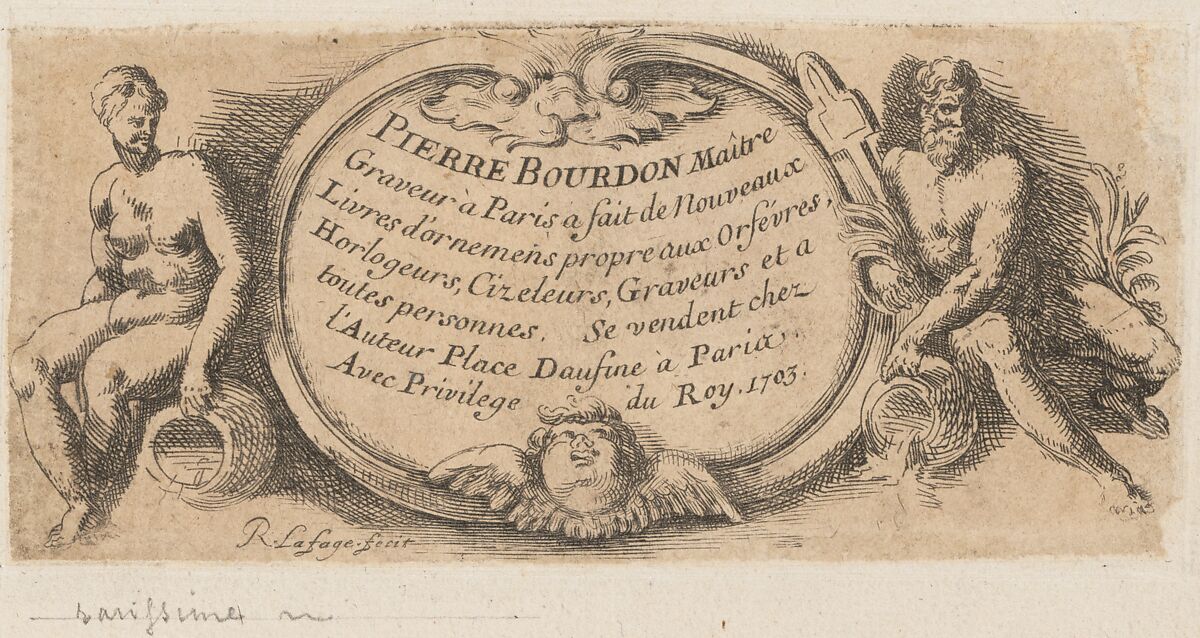 PIERRE BOURDON Maître
Graveur à Paris a fait de Nouveaux
Livres d'ornemens propre aux Orfévres,
Horlogeurs, Cizeleurs, Graveurs et a
toutes personnes. Se vendent chez
l'Auteur Place Daufine à Paris
Avec Privilege du Roy. 1703.
R. Lafage. fecit
rarissime